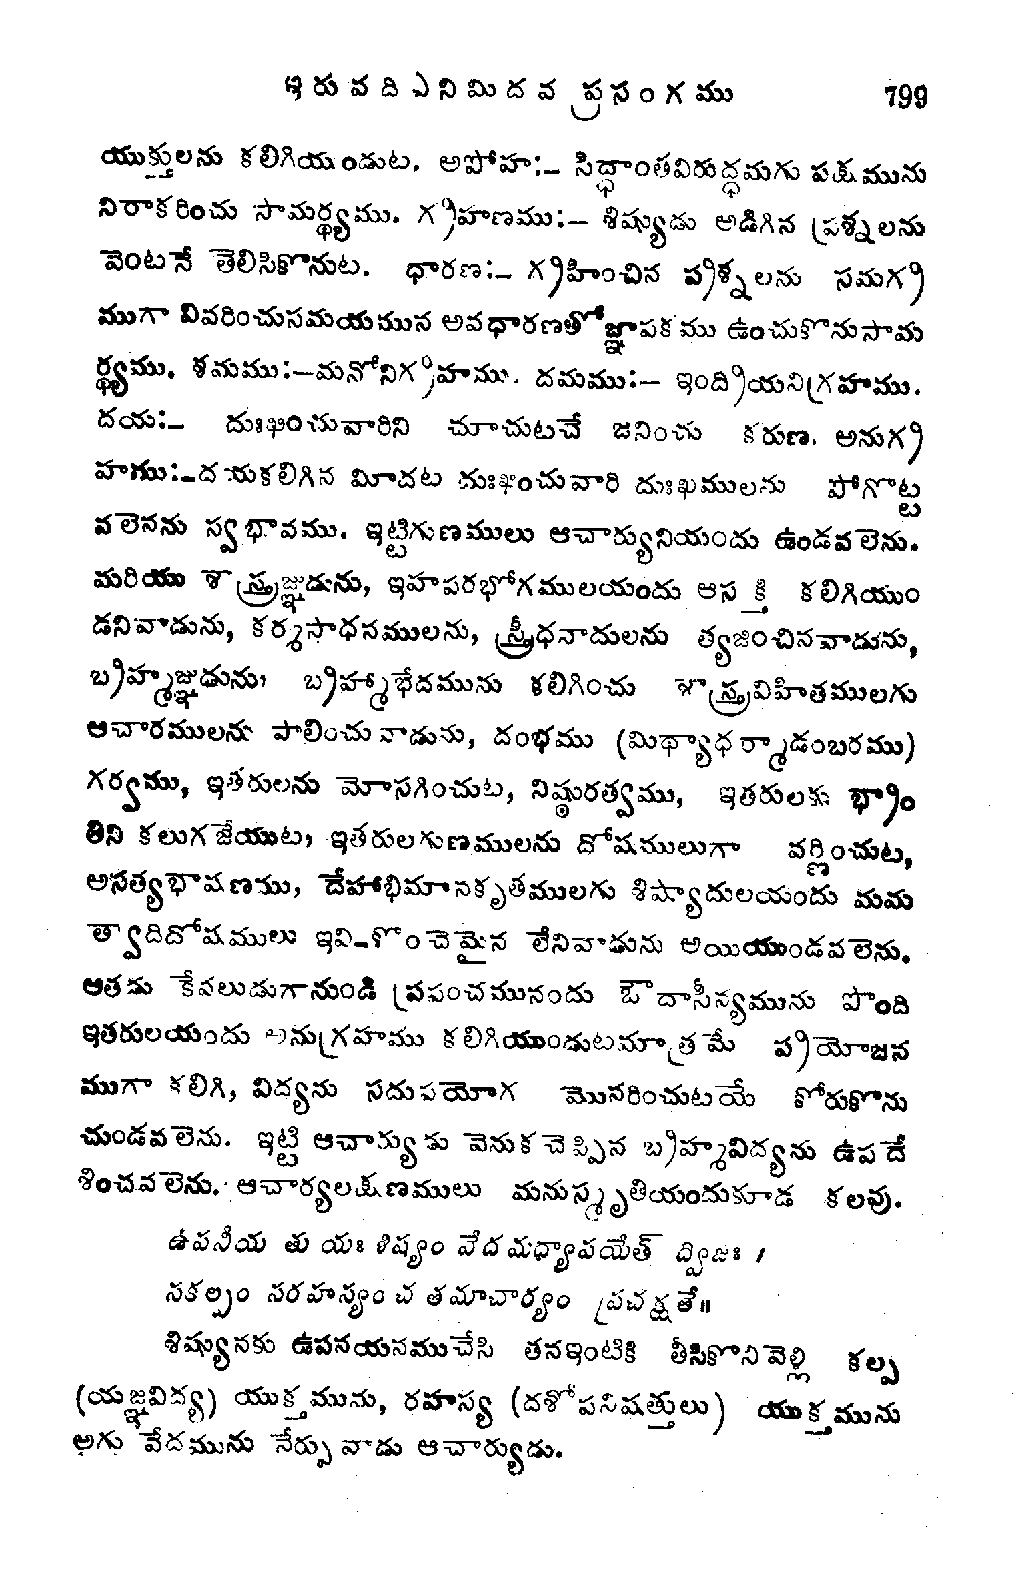 ఇరువదిఎనిమిదవ ప్రసంగము 799
యుక్తులను కలిగియుండుట. అపోహ:– సిద్ధాంతవిరుద్ధమగు పక్షమును
నిరాకరించు సామర్థ్యము. గ్రహణము:– శిష్యుడు అడిగిన ప్రశ్నలను
వెంటనే తెలిసికొనుట. ధారణ:– గ్రహించిన ప్రశ్నలను సమగ్ర
ముగా వివరించుసమయమున అవధారణతో జ్ఞాపకము ఉంచుకొనుసామ
ర్థ్యము. శమము:–మనోనిగ్రహము. దమము:– ఇంద్రియనిగ్రహము.
దయ:– దుఃఖించువారిని చూచుటచే జనించు కరుణ. అనుగ్ర
హము:–దయకలిగిన మీదట దుఃఖించువారి దుఃఖములను పోగొట్ట
వలెనను స్వభావము. ఇట్టిగుణములు ఆచార్యునియందు ఉండవలెను.
మరియు శాస్త్రజ్ఞుడును, ఇహపరభోగములయందు ఆసక్తి కలిగియుం
డనివాడును, కర్మసాధనములను, స్త్రీధనాదులను త్యజించినవాడును,
బ్రహ్మజ్ఞుడును, బ్రహ్మాభేదమును కలిగించు శాస్త్రవిహితములగు
ఆచారములను పాలించువాడును, దంభము (మిథ్యాధర్మాడంబరము)
గర్వము, ఇతరులను మోసగించుట, నిష్ఠురత్వము, ఇతరులకు భ్రాం
తిని కలుగజేయుట, ఇతరులగుణములను దోషములుగా వర్ణించుట,
అసత్యభాషణము, దేహాభిమానకృతములగు శిష్యాదులయందు మమ
త్వాదిదోషములు ఇవి–కొంచెమైన లేనివాడును అయియుండవలెను.
ఆతడు కేవలుడుగానుండి ప్రపంచమునందు ఔదాసీన్యమును పొంది
ఇతరులయందు అనుగ్రహము కలిగియుండుటమాత్రమే ప్రయోజన
ముగా కలిగి, విద్యను సదుపయోగ మొనరించుటయే కోరుకొను
చుండవలెను. ఇట్టి ఆచార్యుడు వెనుకచెప్పిన బ్రహ్మవిద్యను ఉపదే
శించవలెను. ఆచార్యలక్షణములు మనుస్మృతియందుకూడ కలవు.
ఉపనీయ తు యః శిష్యం వేదమధ్యాపయేత్ ద్విజః ।
సకల్పం సరహస్యం చ తమాచార్యం ప్రచక్షతే॥
శిష్యునకు ఉపనయనముచేసి తనఇంటికి తీసికొనివెళ్లి కల్ప
(యజ్ఞవిద్య) యుక్తమును, రహస్య (దశోపనిషత్తులు) యుక్తమును
అగు వేదమును నేర్పువాడు ఆచార్యుడు.